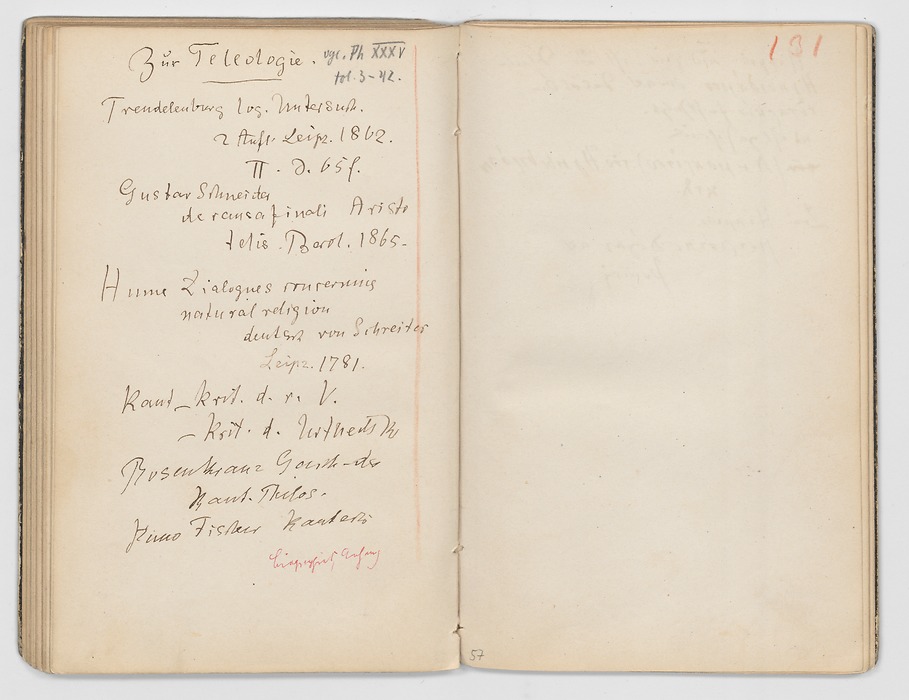 Zur Teleologie. vgl. Ph XXXV
fol. 3-42.
Trendelenburg log. Untersuch.
2 Aufl. Leipz. 1862.
II. S. 65 f.
Gustav Schneider
de causa finali Aristo
telis. Berol. 1865-
Hume Dialogues concerning
natural religion
deutsch von Schreiter
Leipz. 1781.
Kant - Krit. d. r. V.
- Krit. d. Urtheilskr
Rosenkranz Gesch. der
Kant. Philos.
Kuno Fischer Kant
131
57